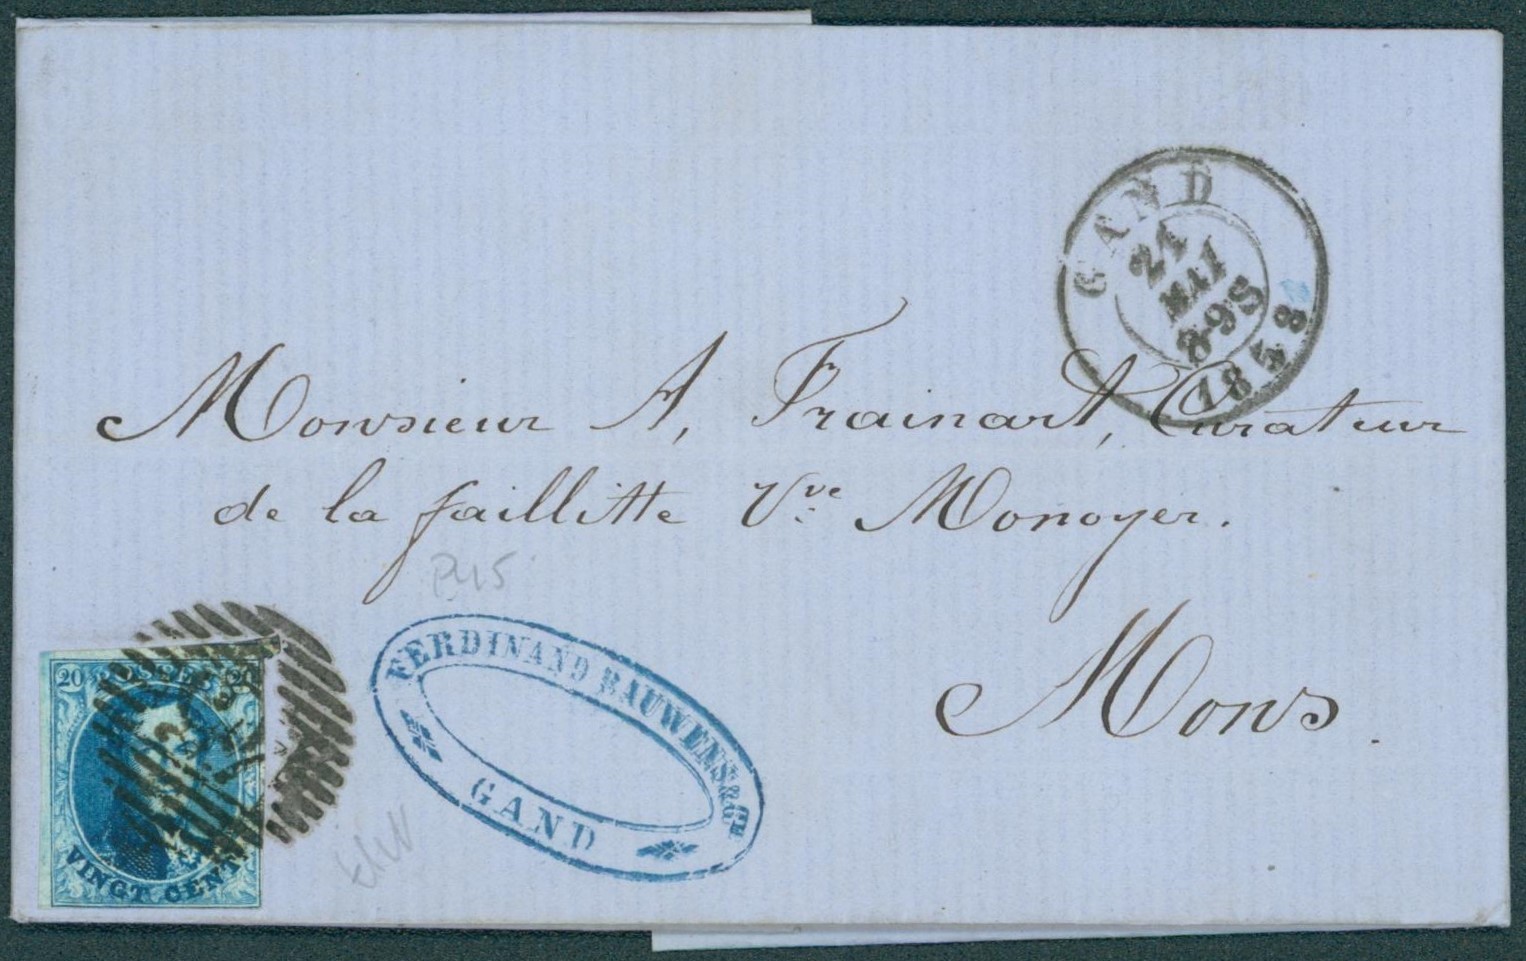 GAND
21
MAI
8-9S
1858
Monsieur A, Frainart, Curateur
de la faillitte Vve Monoyer.
Mons.
FERDINAND BAUWENS & CIE
GAND
20 POSTES 20
VINGT CENT